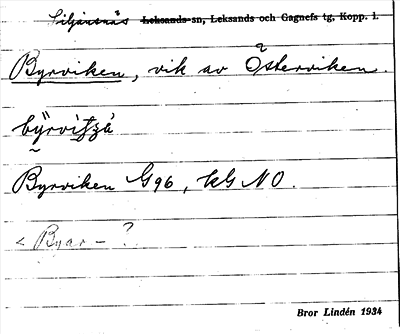 Siljansnäs Leksands-sn, Leksands och Gagnefs tg, Kopp. l.
Byrviken, vik av Österviken.
Byrviken G96, kG NO.
< Byar - ?
Bror Lindén 1934